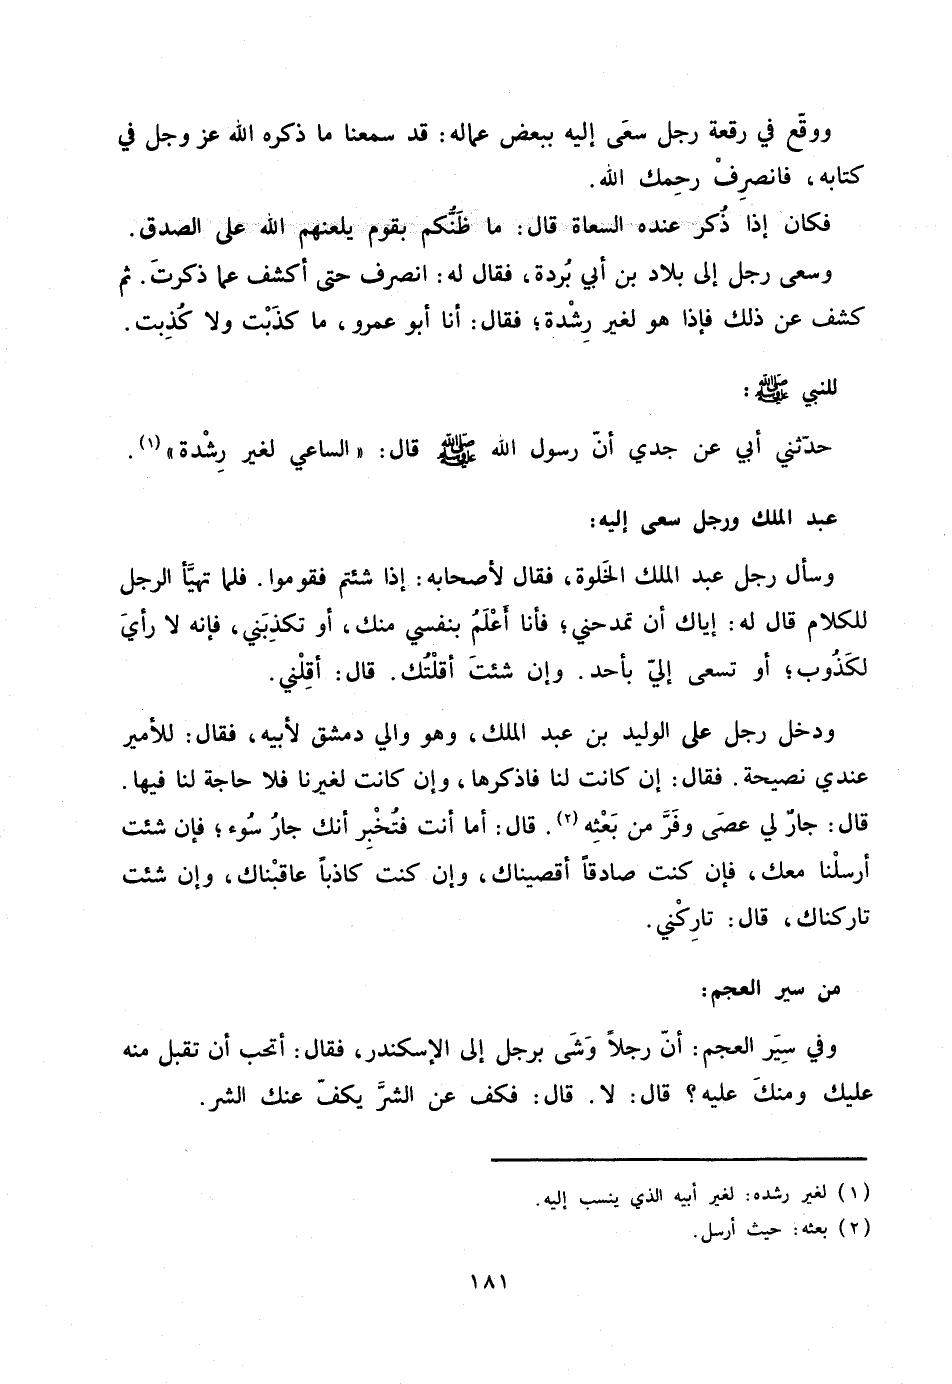 ووقَّع في رقعة رجل سعَى إليه ببعض عماله: قد سمعنا ما ذكره الله عز وجل في
كتابه، فانصرِفْ رحِمك الله.
فكان إذا ذُكر عنده السعاة قال: ما ظَنُّكم بقوم يلعنهم الله على الصدق.
وسعى رجل إلى بلاد بن أبي بُردة، فقال له: انصرف حتى أكشف عما ذكرتَ. ثم
كشف عن ذلك فإذا هو لغير رِشْدة؛ فقال: أنا أبو عمرو، ما كذَبْت ولا كُذِبت.
للنبي ﷺ:
حدّثني أبي عن جدي أنّ رسول الله ﷺ قال: «الساعي لغير رِشْدة»(١).
عبد الملك ورجل سعى إليه:
وسأل رجل عبد الملك الخَلوة، فقال لأصحابه: إذا شئتم فقوموا. فلما تهيَّأ الرجل
للكلام قال له: إياك أن تمدحني؛ فأنا أَعْلَمُ بنفسي منك، أو تكذِبَني، فإنه لا رأيَ
لكَذُوب؛ أو تسعى إليّ بأحد. وإن شئتَ أقلْتُك. قال: أقِلْني.
ودخل رجل على الوليد بن عبد الملك، وهو والي دمشق لأبيه، فقال: للأمير
عندي نصيحة. فقال: إن كانت لنا فاذكرها، وإن كانت لغيرنا فلا حاجة لنا فيها.
قال: جارٌ لي عصَى وفَرَّ من بَعْثِه(٢). قال: أما أنت فتُخْبِر أنك جارُ سُوء؛ فإن شئت
أرسلْنا معك، فإن كنت صادقاً أقصيناك، وإن كنت كاذباً عاقبْناك، وإن شئت
تاركناك، قال: تارِكْني.
من سير العجم:
وفي سِيَر العجم: أنّ رجلاً وَشَى برجل إلى الإسكندر، فقال: أتحب أن تقبل منه
عليك ومنكَ عليه؟ قال: لا. قال: فكف عن الشرَّ يكفّ عنك الشر.
(١) لغير رشده: لغير أبيه الذي ينسب إليه.
(٢) بعثه: حيث أرسل.
١٨١